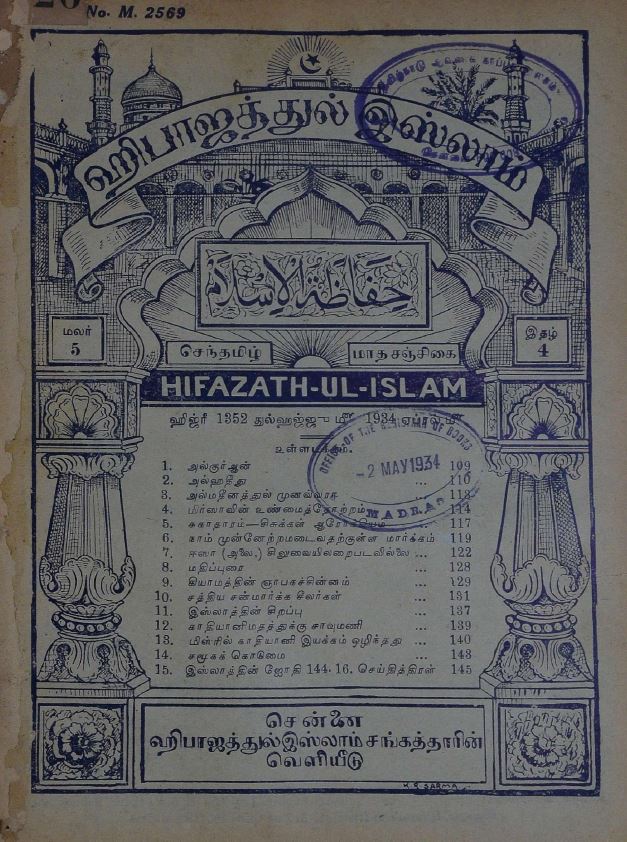 No. M. 2569
ஹிபாஜத்துல் இஸ்லாம்
حفاظة الاسلام
மலர் 5
இதழ் 4
செந்தமிழ் மாதசஞ்சிகை
HIFAZATH-UL-ISLAM
ஹிஜ்ரீ 1352 துல்ஹஜ்ஜு 1934 ஏப்ரல்
உள்ளடக்கம்.
OFFICE OF THE REGISTRAR OF BOOKS
-2 MAY 1934
MADRAS
1. அல்குர்ஆன் ... 109
2. அல்ஹதீது ... 110
3. அல்மதீனத்துல் முனவ்வரா ... 113
4. மிர்ஸாவின் உண்மைத்தோற்றம் ... 114
5. சுகாதாரம்—சிசுக்கள் ஆரோக்கியம் ... 117
6. நாம் முன்னேற்றமடைவதற்குள்ள மார்க்கம் 119
7. ஈஸா (அலை.) சிலுவையிலறைபடவில்லை ... 122
8. மதிப்புரை ... 128
9. கியாமத்தின் ஞாபகச்சின்னம் ... 129
10. சத்திய சன்மார்க்க சீலர்கள் ... 131
11. இஸ்லாத்தின் சிறப்பு ... 137
12. காதியானிமதத்துக்கு சாவுமணி ... 139
13. மிஸ்ரில் காதியானி இயக்கம் ஒழிந்தது ... 140
14. சமூகக் கொடுமை ... 143
15. இஸ்லாத்தின் ஜோதி 144. 16. செய்தித்திரள் 145
சென்னை
ஹிபாஜத்துல் இஸ்லாம் சங்கத்தாரின்
வெளியீடு
K.R. SARMA